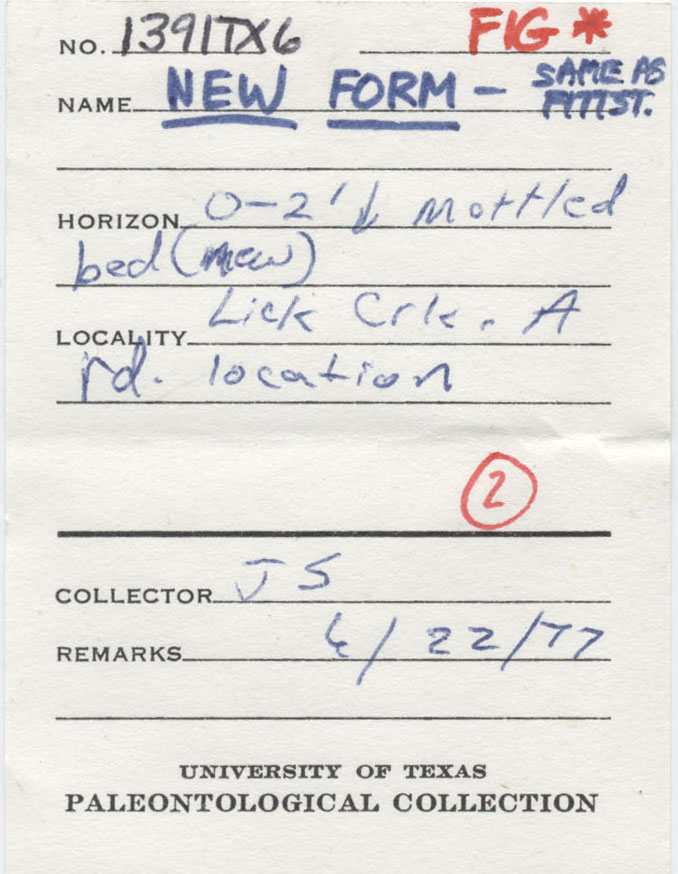 NO. 1391TX6 FIG *
NAME NEW FORM - SAME AS
HORIZON 0-2'↓ Mottled
bed (new)
LOCALITY Lick Crk. A
rd. location
2
COLLECTOR JS
REMARKS 6/22/77
UNIVERSITY OF TEXAS
PALEONTOLOGICAL COLLECTION